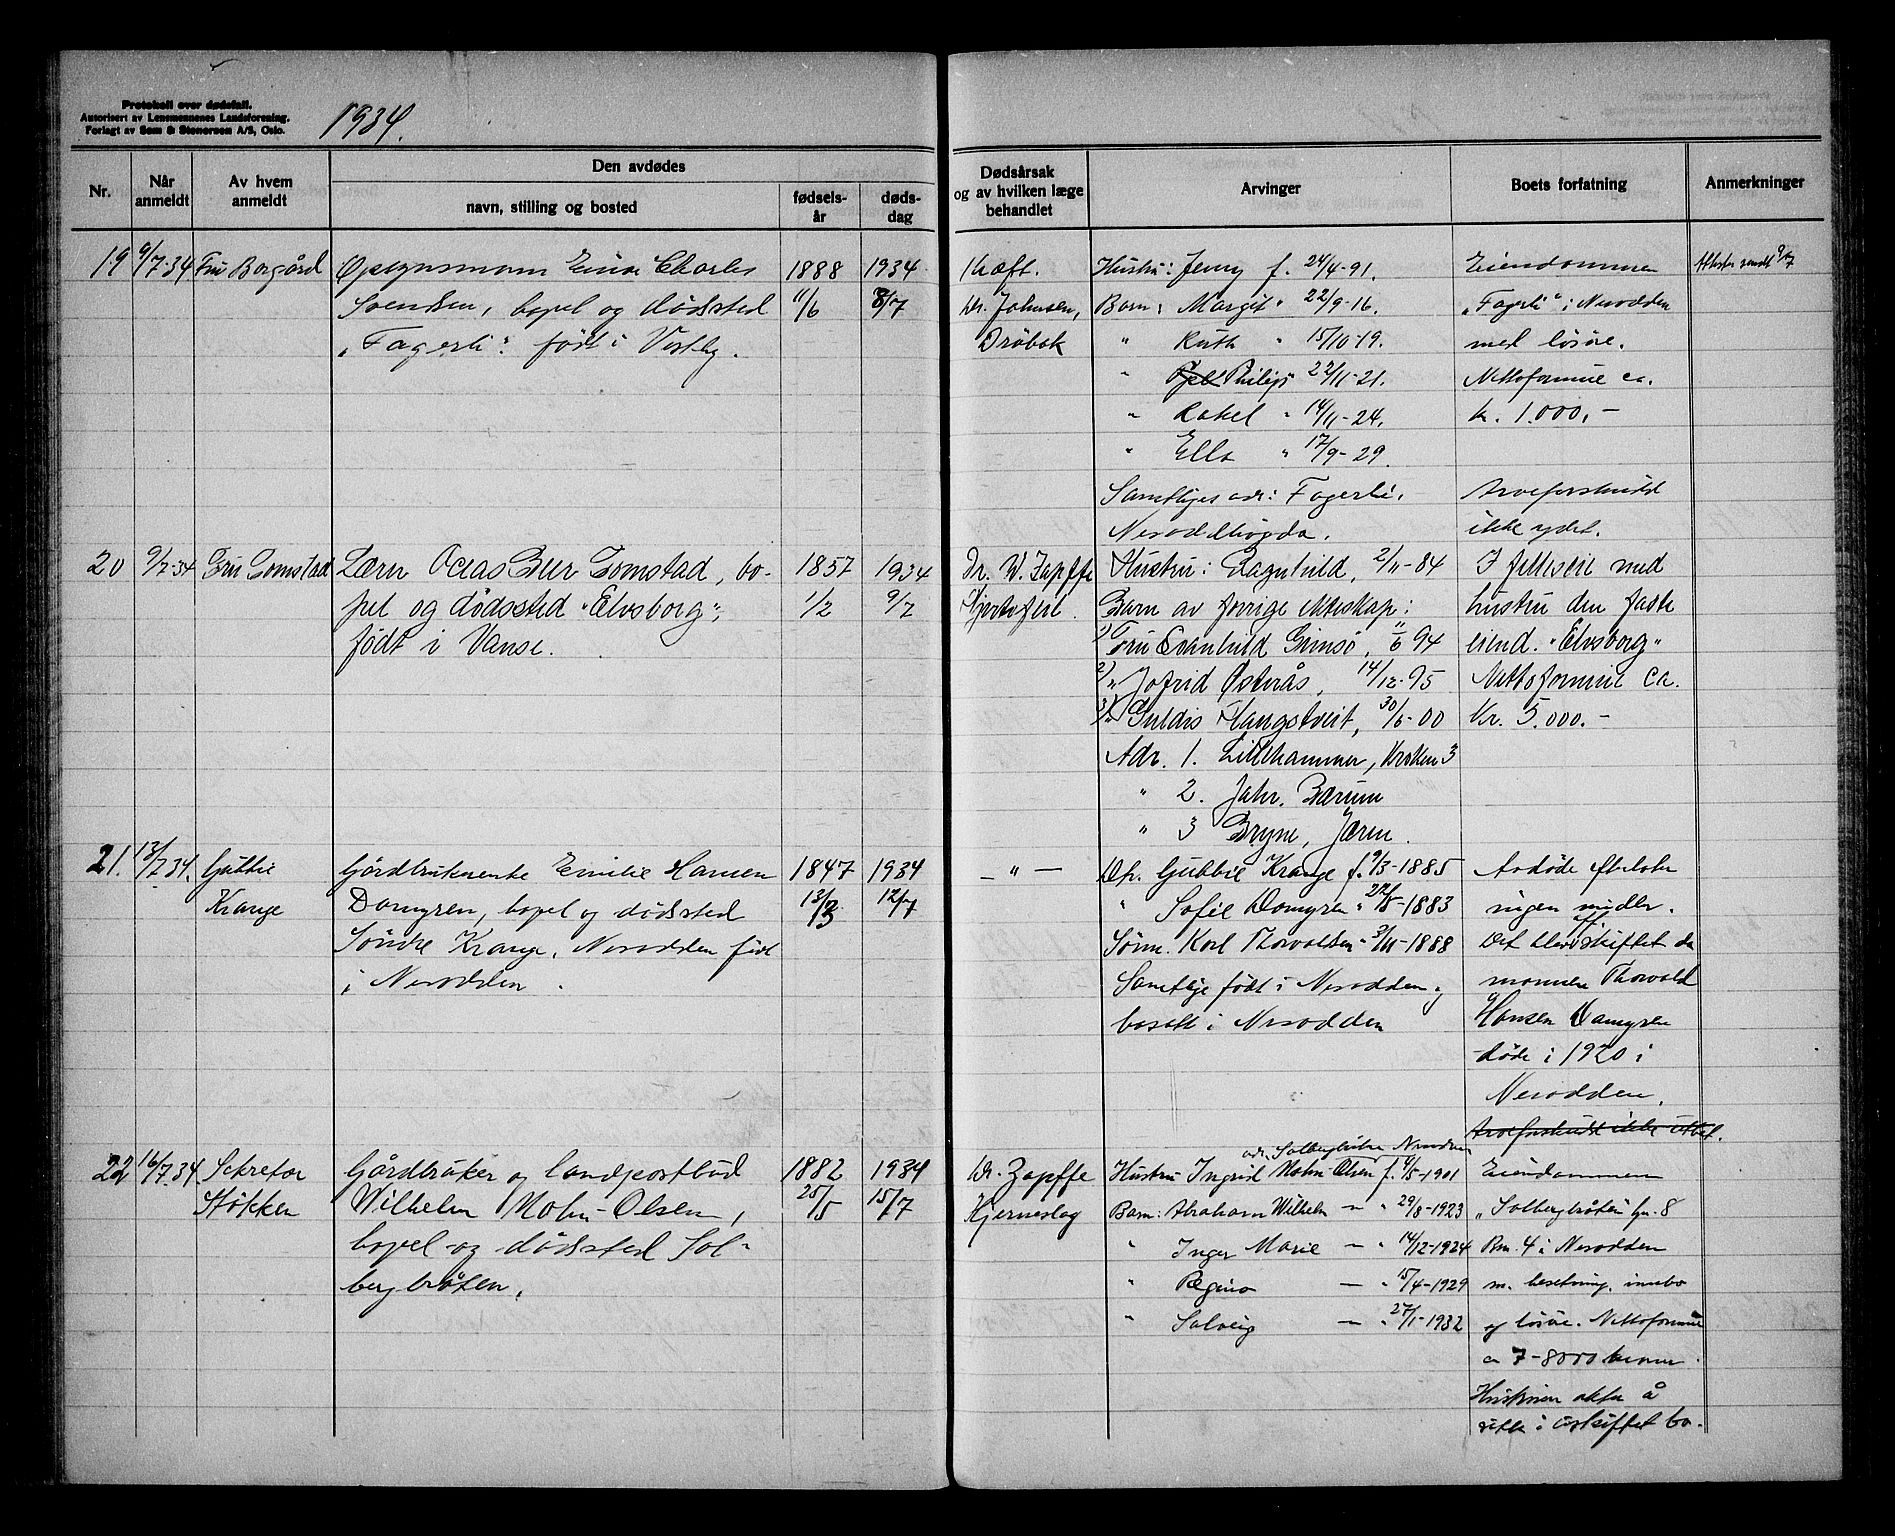 Protokoll over dødsfall.
Autorisert av Lensmennenes Landsforening.
Forlagt av Sem & Stenersen A/S, Oslo.
1934.
Nr.
Når anmeldt
Av hvem anmeldt
Den avdødes
navn, stilling og bosted
fødselsår
dødsdag
Dødsårsak og av hvilken læge behandlet
Arvinger
Boets forfatning
Anmerkninger
19 9/7-34 Fru Borgård
Opsynsmann Einar Charles 1888 1934
Svendsen, bopel og dødssted 11/6 8/7
"Fagerli". født i Vestby.
Kræft.
Dr. Johnsen,
Drøbak
Hustru: Jenny f. 24/4-91.
Barn: Margit " 22/9-16.
" Ruth " 15/10-19.
" Philip " 22/11-21.
" Rakel " 14/11-24.
" Ella " 17/9-29.
Samtliges adr: Fagerli,
Nesoddhøgda.
Eiendommen
"Fagerli" i Nesodden
med løsøre.
Nettoformue ca.
kr. 1.000,-
Arveforskudd
ikke ydet.
Attester sendt 9/7
20 9/7-34 Fru Tomstad
Lærer Tomstad, bo- 1857 1934
pel og dødssted "Elvsborg", 1/2 9/7
født i Vanse.
Dr. W. Zapffe
Hjertefeil.
Hustru: Ragnhild, 2/11-84
Barn av forrige ekteskap:
1) Fru Svanhild Grimsø, 11/6 94
2) " Jofrid Østerås, 14/12-95
3) " Guldis Haugstveit, 30/6-00
Adr. 1. Lillehammer, Kroken 3
" 2. Jahr, Bærum
" 3 Bryne, Jæren.
I felleseie med
hustru den faste
eiend. "Elvsborg"
Nettoformue ca.
Kr. 5.000.-
21. 13/7 34. Gubbie
Krange
Gårdbrukerenke Emilie Hansen 1847 1934
Damyren, bopel og dødssted 13/3 12/7
Søndre Krange, Nesodden født
i Nesodden.
— " —
Dtr. Gubbie Krange f. 9/3-1885
" Sofie Damyren " 22/8-1883
Sønn Karl Thorvaldsen " 3/11-1888
Samtlige født i Nesodden og
bosatt i Nesodden
Avdøde efterlater
ingen midler.
Det blev skiftet da
mannen Thorvald
Hansen Damyren
døde i 1920 i
Nesodden.
Arveforskudd ikke utbet.
22 16/7.34 Sekretær
Støkken
Gårdbruker og landpostbud 1882 1934
Wilhelm Mohn-Olsen, 25/5 15/7
bopel og dødssted Sol-
bergbråten.
Dr. Zapffe
Hjerneslag
adr. Solbergbråten Nesodden
Hustru Ingrid Mohn Olsen f. 9/5-1901
Barn: Abraham Wilhelm — " 29/8-1923
" Inger Marie — " 14/12-1924
" Regina — " 15/4-1929
" Solveig — " 27/1-1932
Eiendommen
"Solbergbråten" gn. 8
Bn. 4 i Nesodden
m. besetning, innbo
og løsøre. Nettoformue
ca 7-8000 kroner.
Hustruen akter å
sitte i uskiftet bo.